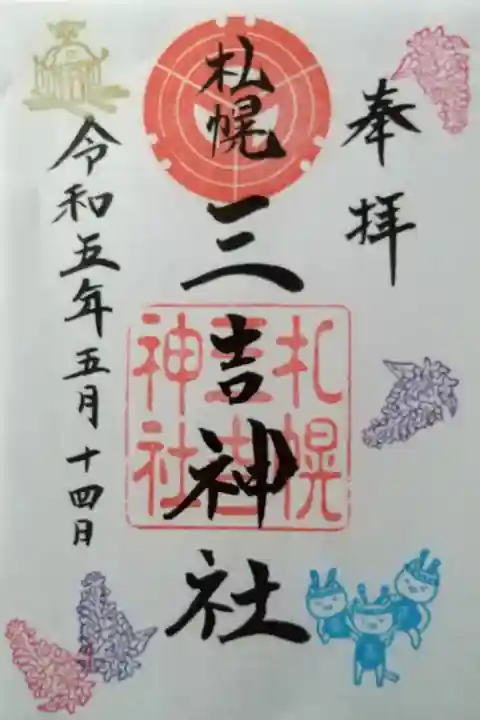 奉拝
札幌
三吉神社
令和五年五月十四日
札幌
三吉
神社